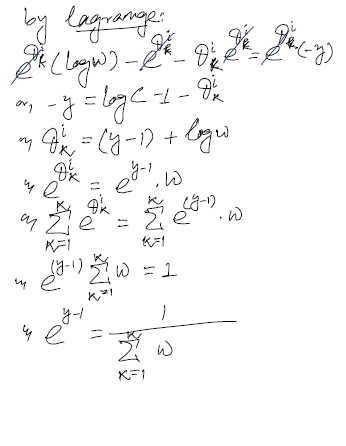 by lagrange:
e^{θ_k^i} (log w) - e^{θ_k^i} - θ_k^i e^{θ_k^i} = e^{θ_k^i} (-y)
or, -y = log c - 1 - θ_k^i
or, θ_k^i = (y-1) + log w
or, e^{θ_k^i} = e^{y-1} . w
or, \sum_{k=1}^{K} e^{θ_k^i} = \sum_{k=1}^{K} e^{(y-1)} . w
or, e^{(y-1)} \sum_{k=1}^{K} w = 1
or, e^{y-1} = \frac{1}{\sum_{k=1}^{K} w}